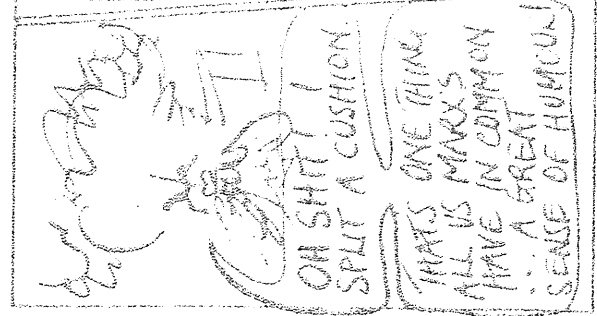 OH SHIT I
SPLIT A CUSHION.
THAT'S ONE THING
ALL US MARX'S
HAVE IN COMMON
... A GREAT
SENSE OF HUMOUR